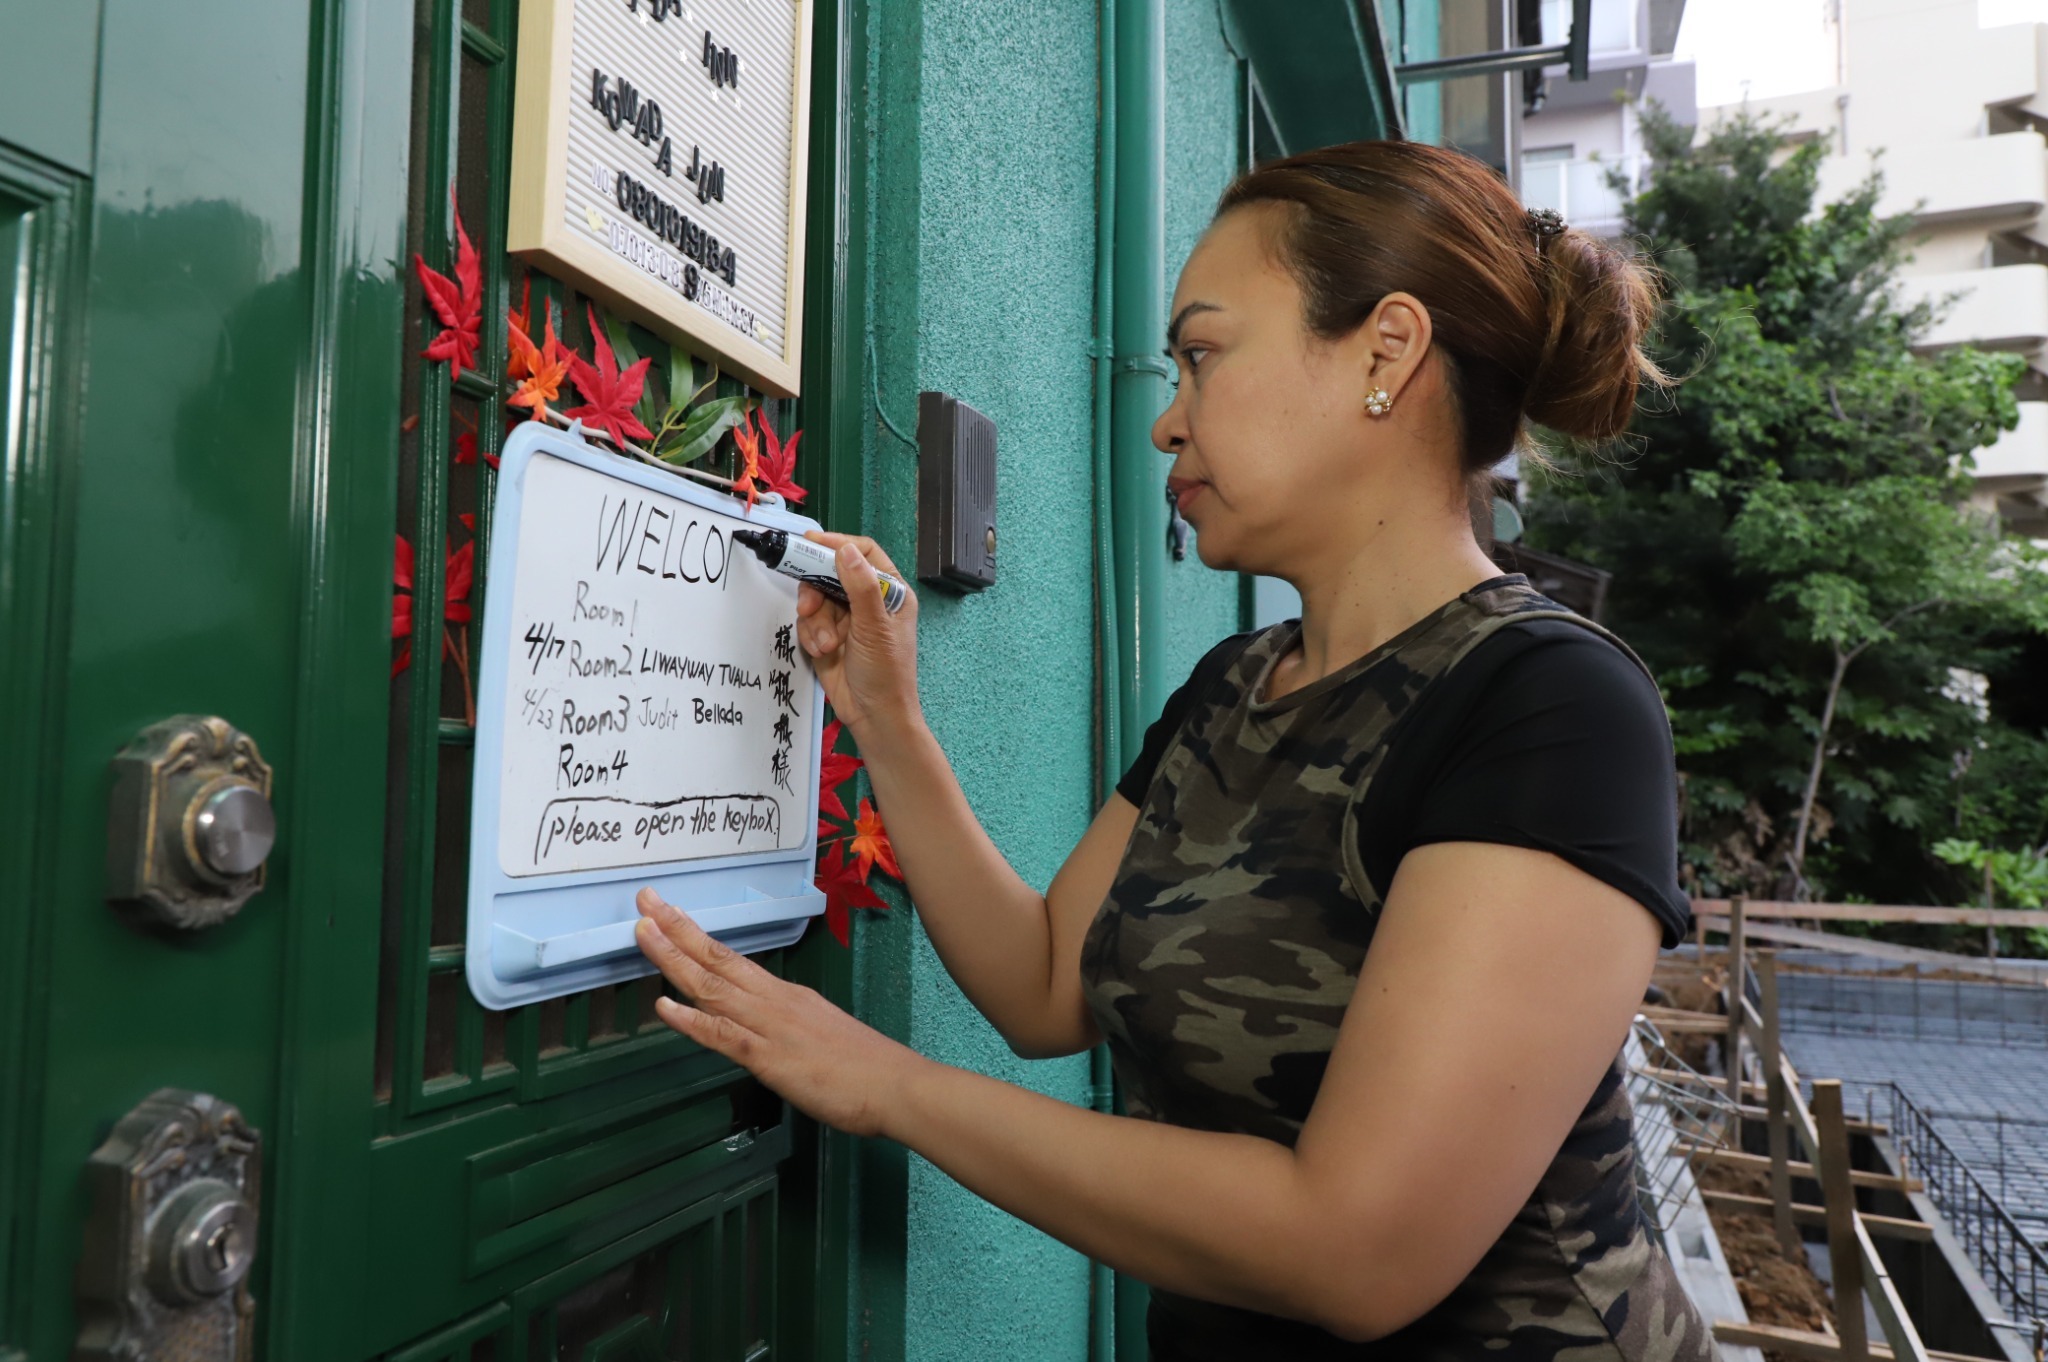 INN
KOWADA JAN
NO. 08019184
9
WELCO
Room 1 様
4/17 Room2 LIWAYWAY TUALLA 様
4/23 Room3 Judit Bellada 様
Room 4 様
please open the keybox.
PILOT